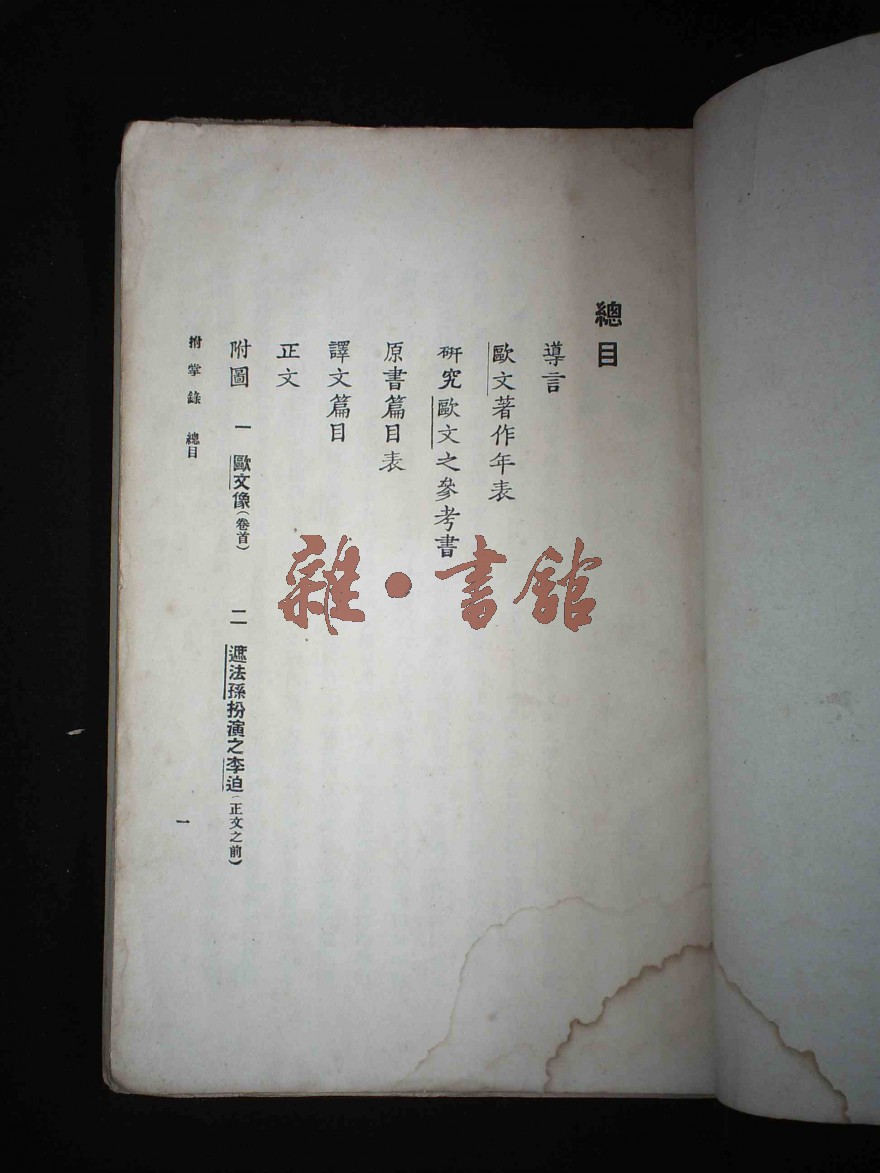 總目
導言
歐文著作年表
研究歐文之參考書
原書篇目表
譯文篇目
正文
附圖 一 歐文像（卷首） 二 遮法孫扮演之李迫（正文之前）
拊掌錄 總目 一
雜·書館